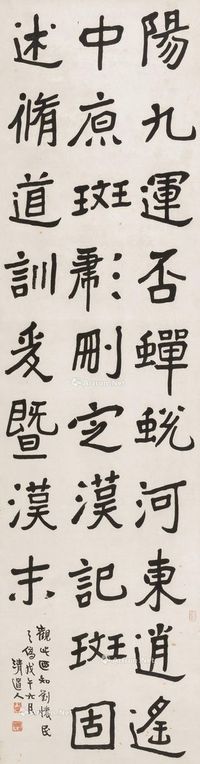 陽九運否蟬蛻河東逍遙
中原斑彪刪定漢記斑固
述脩道訓爰暨漢末
觀此知劉懷民
之偽戊午六月
清道人